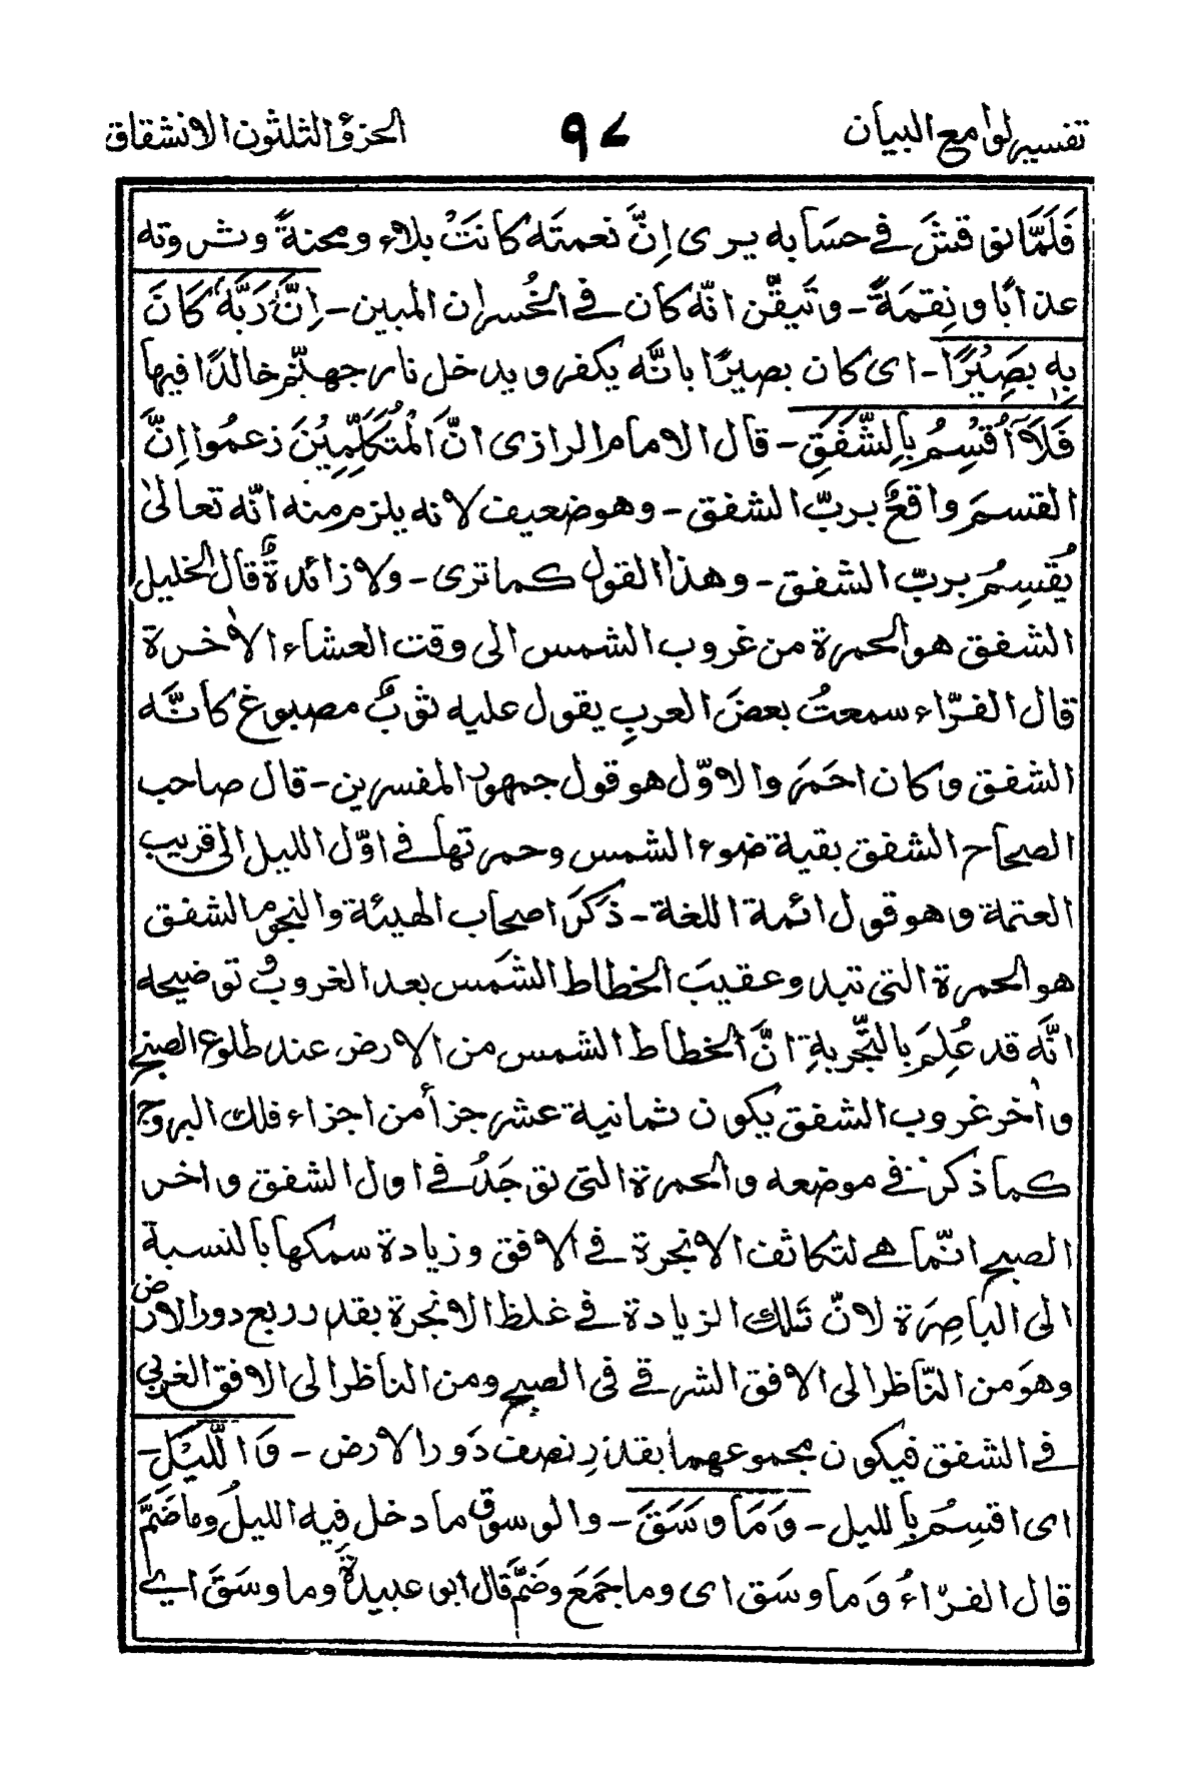 تفسير لوامع البيان ٩٧ الجزؤ الثلثون الانشقاق
فَلَمَّا نوقشَ في حسَابه يرى اِنَّ نعمتَه كانَتْ بلاء ومحنةً وثروته
عذابًا ونِقمَةً - وتَيقّن انّه كان في الخُسران المبين - اِنَّ رَبَّهٗ كَانَ
بِهٖ بَصِيْرًا - اى كان بصيرًا بانَّه يكفر ويدخل نار جهنّم خالدًا فيها
فَلَآ اُقْسِمُ بِالشَّفَقِ - قال الامام الرازى انَّ الْمُتَكَلِّمِيْنَ زعمُوا اِنَّ
القسمَ واقعٌ بربّ الشفق - وهو ضعيف لانه يلزم منه انّه تعالىٰ
يُقسِمُ بربّ الشفق - وهذا القول كما ترى - ولا زائدةٌ قال الخليل
الشفق هو الحمرة من غروب الشمس الى وقت العشاء الاٰخرة
قال الفرّاء سمعتُ بعضَ العربِ يقول عليه ثوبٌ مصبوغ كأنَّه
الشفق وكان احمَرَ والاوّل هو قول جمهور المفسرين - قال صاحب
الصحاح الشفق بقية ضوء الشمس وحمرتها في اوّل الليل الى قريب
العتمة وهو قول ائمة اللغة - ذكرَ اصحاب الهيئة والنجوم الشفق
هو الحمرة التى تبدو عقيبَ انحطاط الشمَس بعد الغروب و توضيحه
انَّه قد عُلِمَ بالتّجربةِ انَّ انحطاط الشمس من الارض عند طلوع الصبح
واٰخر غروب الشفق يكون ثمانية عشر جزأ من اجزاء فلك البروج
كما ذكر في موضعه والحمرة التى توجَدُ في اول الشفق واخر
الصبح انّما هى لتكاثف الابخرة في الافق وزيادة سمكها بالنسبة
الى الباصِرَة لانّ تَلك الزيادة في غلظ الابخرة بقدر ربع دور الارض
وهوَ من النّاظر الى الافق الشرقى فى الصبح ومن الناظر الى الافق الغربي
في الشفق فيكون مجموعهما بقدَرِ نصف دَور الارض - وَالَّليْلِ -
اى اقسِمُ بالليل - وَمَا وَسَقَ - والوسوق ما دخل فِيه الليلُ وما ضَمَّ
قال الفرّاءُ وَما وسَق اى وما جمَعَ وضَمَّ قال ابو عبيدةَ وما وسَقَ اى